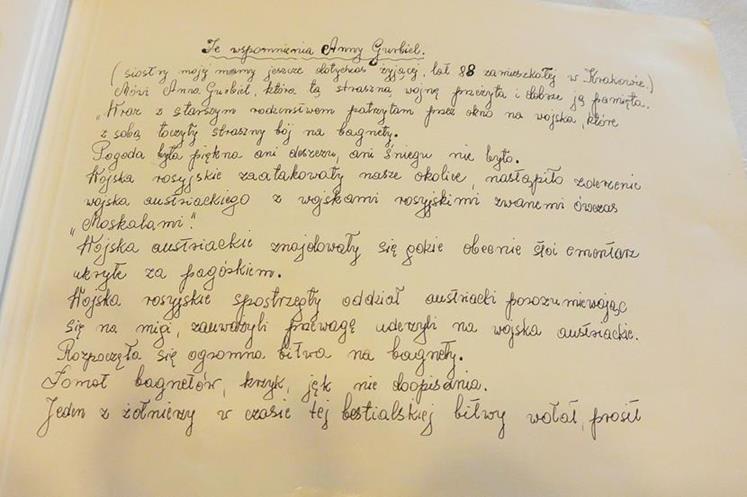 Te wspomnienia Anny Gurbiel.
(siostry mojej mamy jeszcze dotychczas żyjącej, lat 88 zamieszkałej w Krakowie.)
Mówi Anna Gurbiel, która tą straszną wojnę przeżyła i dobrze ją pamięta.
"Wraz z starszym rodzeństwem patrzyłam przez okno na wojska, które
z sobą toczyły straszny bój na bagnety.
Pogoda była piękna ani deszczu, ani śniegu nie było.
Wojska rosyjskie zaatakowały nasze okolice, nastąpiło zderzenie
wojska austriackiego z wojskami rosyjskimi zwanemi ówczas
"Moskalami".
Wojska austriackie znajdowały się gdzie obecnie stoi cmentarz
ukryte za pagórkiem.
Wojska rosyjskie spostrzegły oddział austriacki porozumiewając
się na migi, zauważyli przewagę uderzyli na wojska austriackie.
Rozpoczęła się ogromna bitwa na bagnety.
Łomot bagnetów, krzyk, jęk nie doopisania.
Jeden z żołnierzy w czasie tej bestialskiej bitwy wołał, prosił